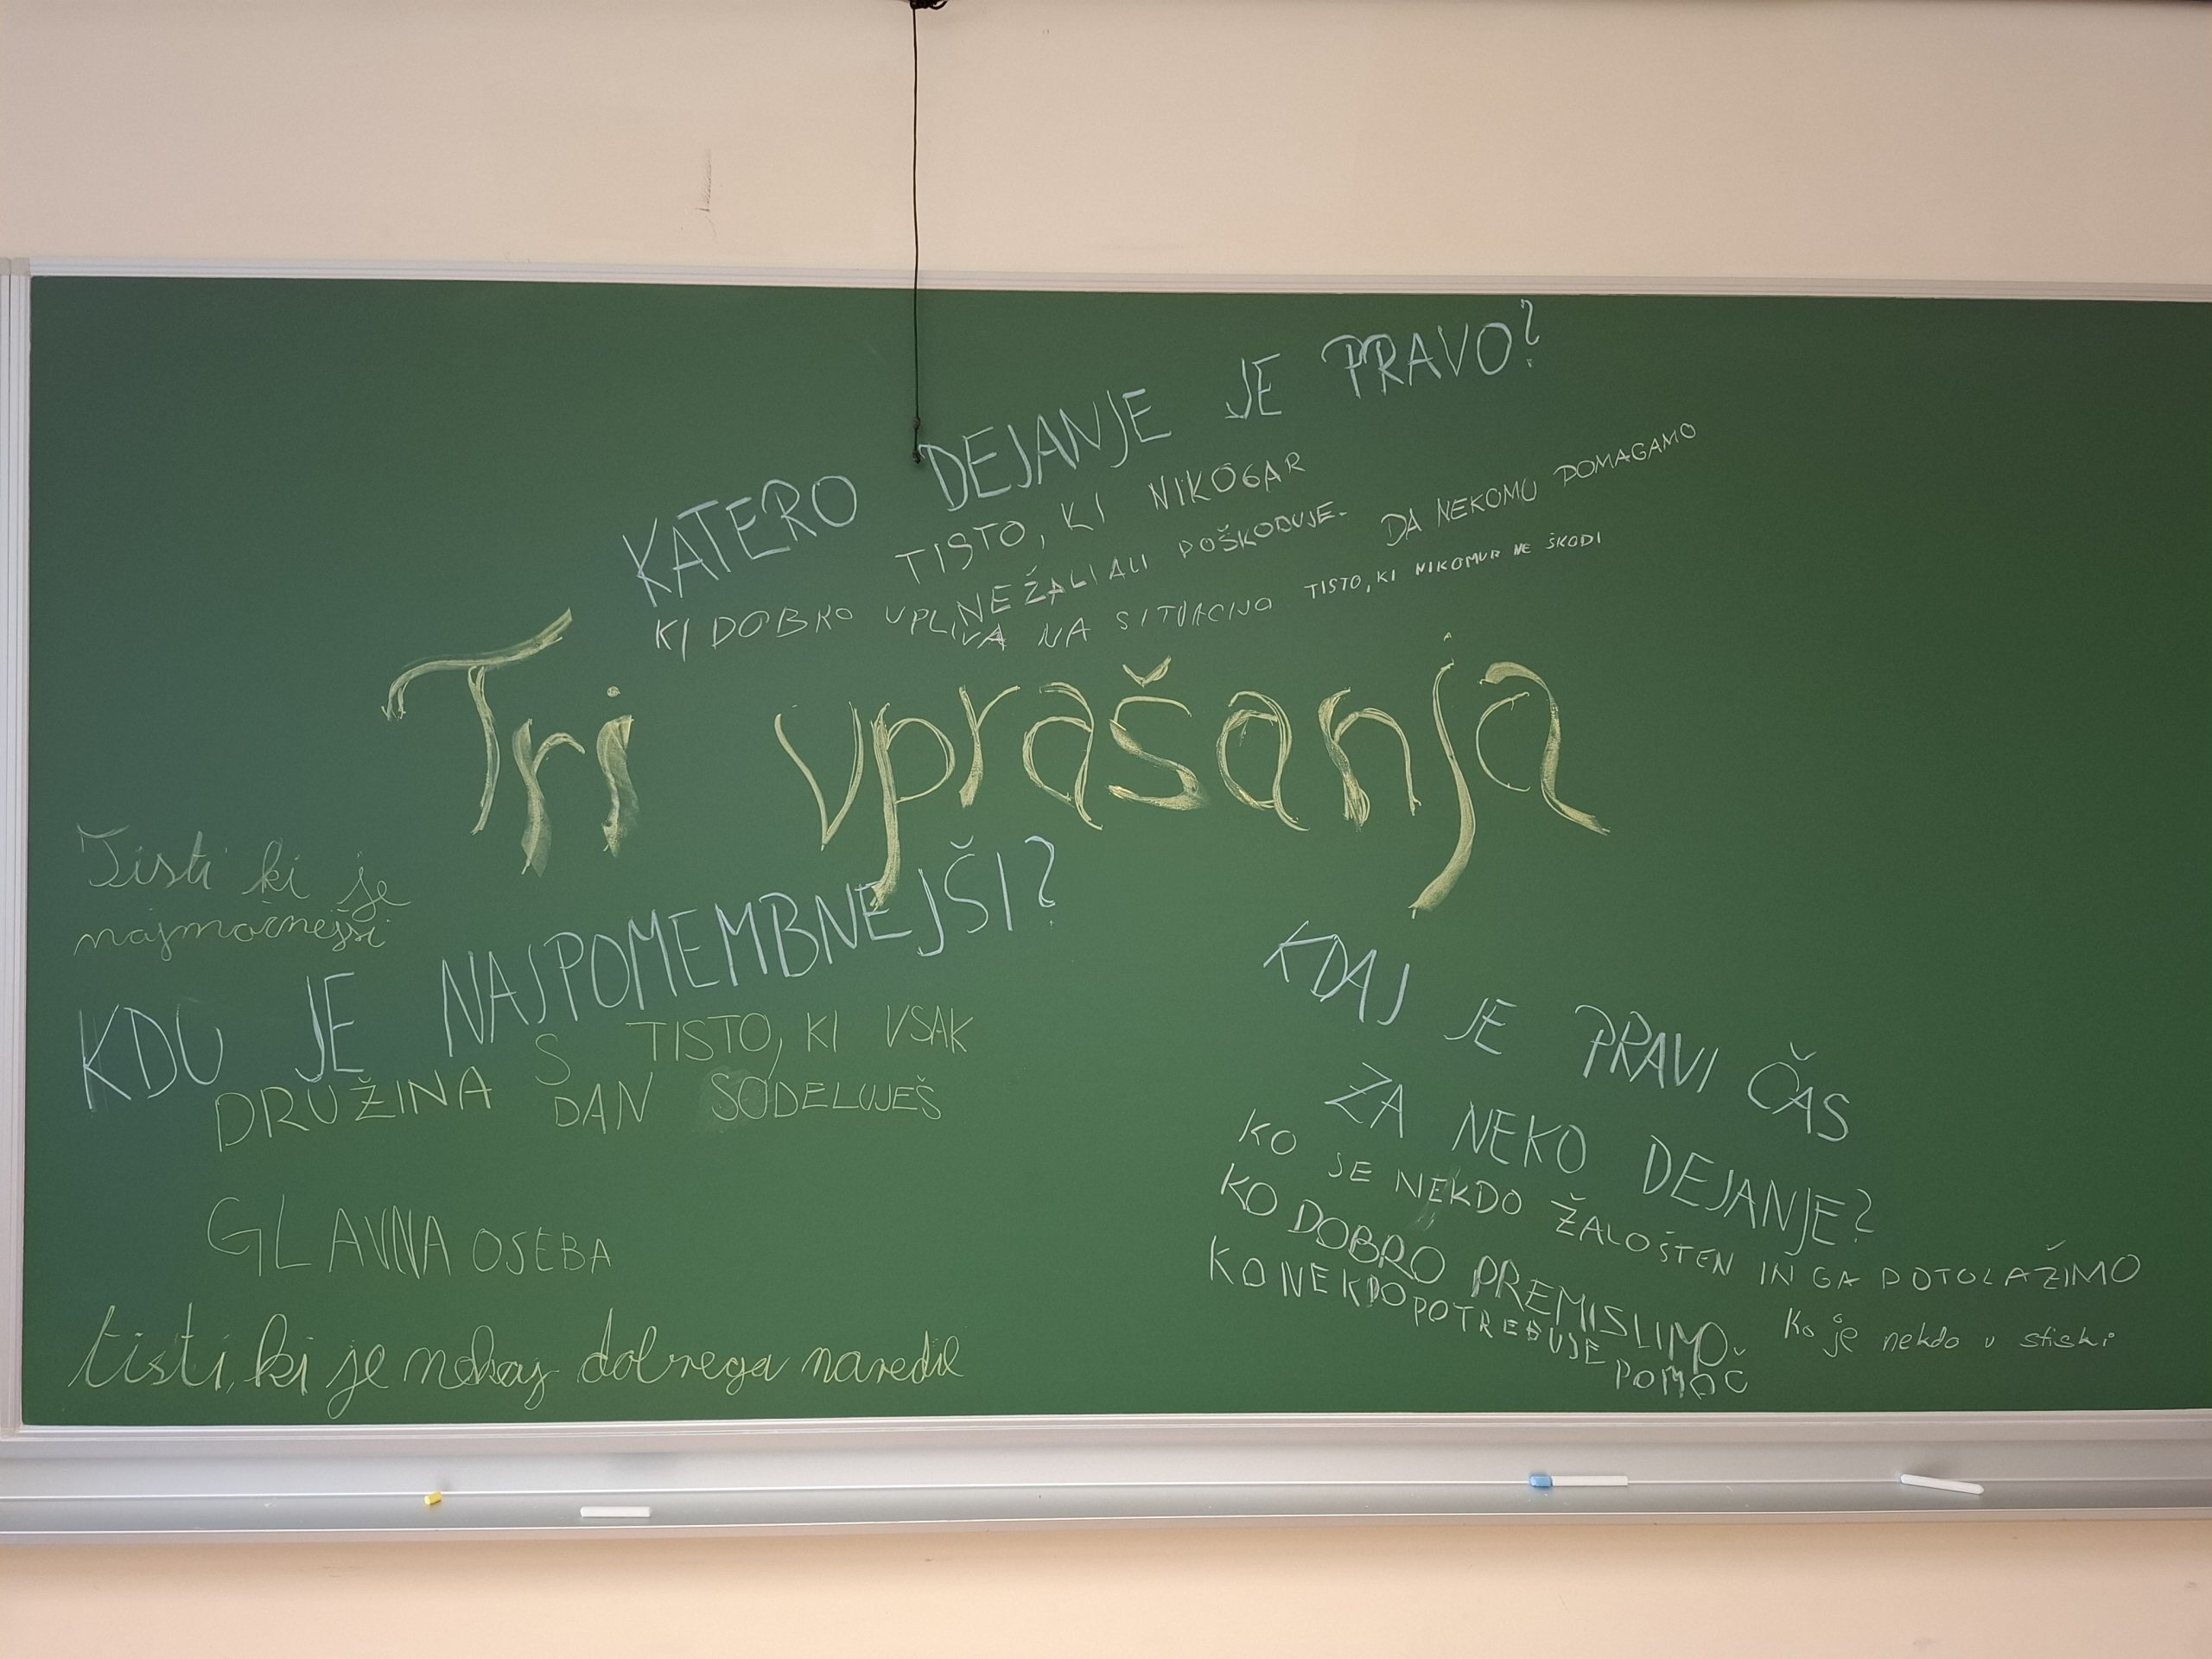 KATERO DEJANJE JE PRAVO?
TISTO, KI NIKOGAR
NE ŽALI ALI POŠKODUJE.
DA NEKOMU POMAGAMO
KI DOBRO UPLIVA NA SITUACIJO
TISTO, KI NIKOMUR NE ŠKODI
Tri vprašanja
Tisti ki je
najmočnejši
KDO JE NAJPOMEMBNEJŠI?
S TISTO, KI VSAK
DAN SODELUJEŠ
DRUŽINA
GLAVNA OSEBA
tisti, ki je nekaj dobrega naredil
KDAJ JE PRAVI ČAS
ZA NEKO DEJANJE?
KO JE NEKDO ŽALOSTEN IN GA POTOLAŽIMO
KO DOBRO PREMISLIMO.
KO NEKDO POTREBUJE
POMOČ
Ko je nekdo v stiski